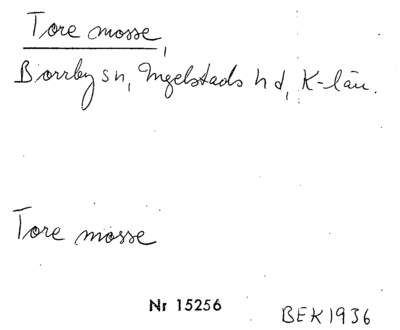 Tore mosse,
Borrby sn, Ingelstads hd, K-län.
Tore mosse
Nr 15256
BEK1936